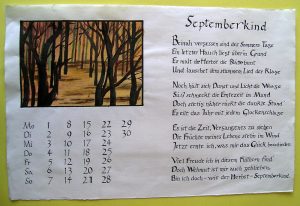 Septemberkind
Beinah vergessen sind des Sommers Tage
Ein letzter Hauch liegt überm Grund
Er malt der
Und lauschet dem stummen Lied der Klage
Noch hüllt sich Dunst und Licht die Waage
Süß schmeckt die Erntezeit im Mund
Doch stetig näher rückt die dunkle Stund
Er eilt das Jahr mit jedem Glockenschlage
Es ist die Zeit, Vergangenes zu singen
Die Früchte meines Lebens stehn im Wind
Jetzt ernte ich, was mir das Glück beschieden
Viel Freude ich in diesem find
Doch Wehmut ist mir auch geblieben
Bin ich doch - wie der Herbst - Septemberkind.
Mo 1 8 15 22 29
Di 2 9 16 23 30
Mi 3 10 17 24
Do 4 11 18 25
Fr 5 12 19 26
Sa 6 13 20 27
So 7 14 21 28